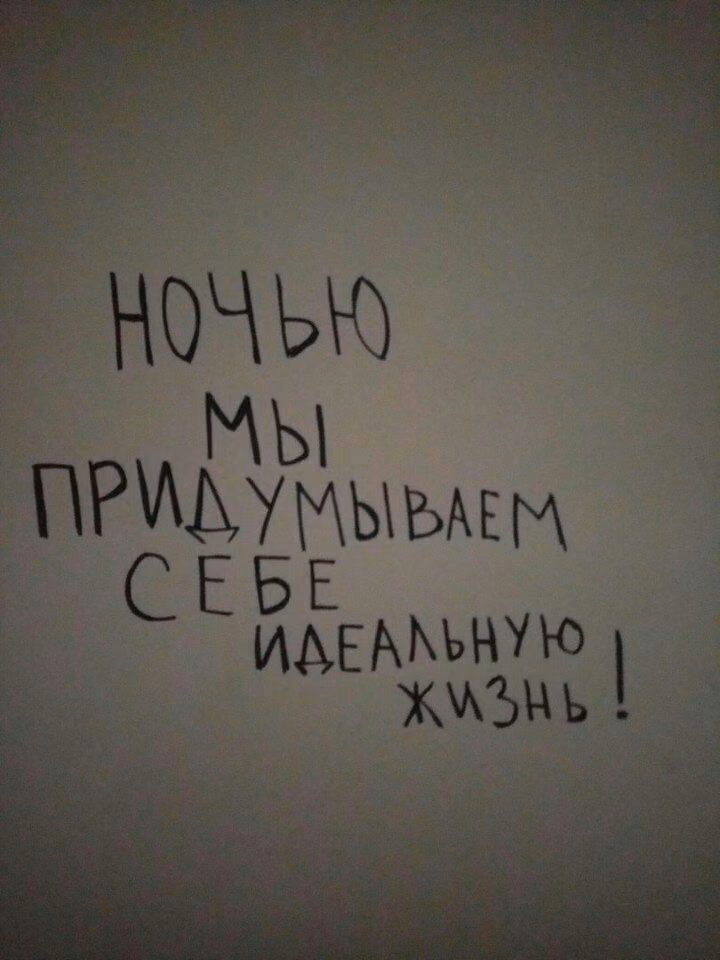 НОЧЬЮ
МЫ
ПРИДУМЫВАЕМ
СЕБЕ
ИДЕАЛЬНУЮ
ЖИЗНЬ!